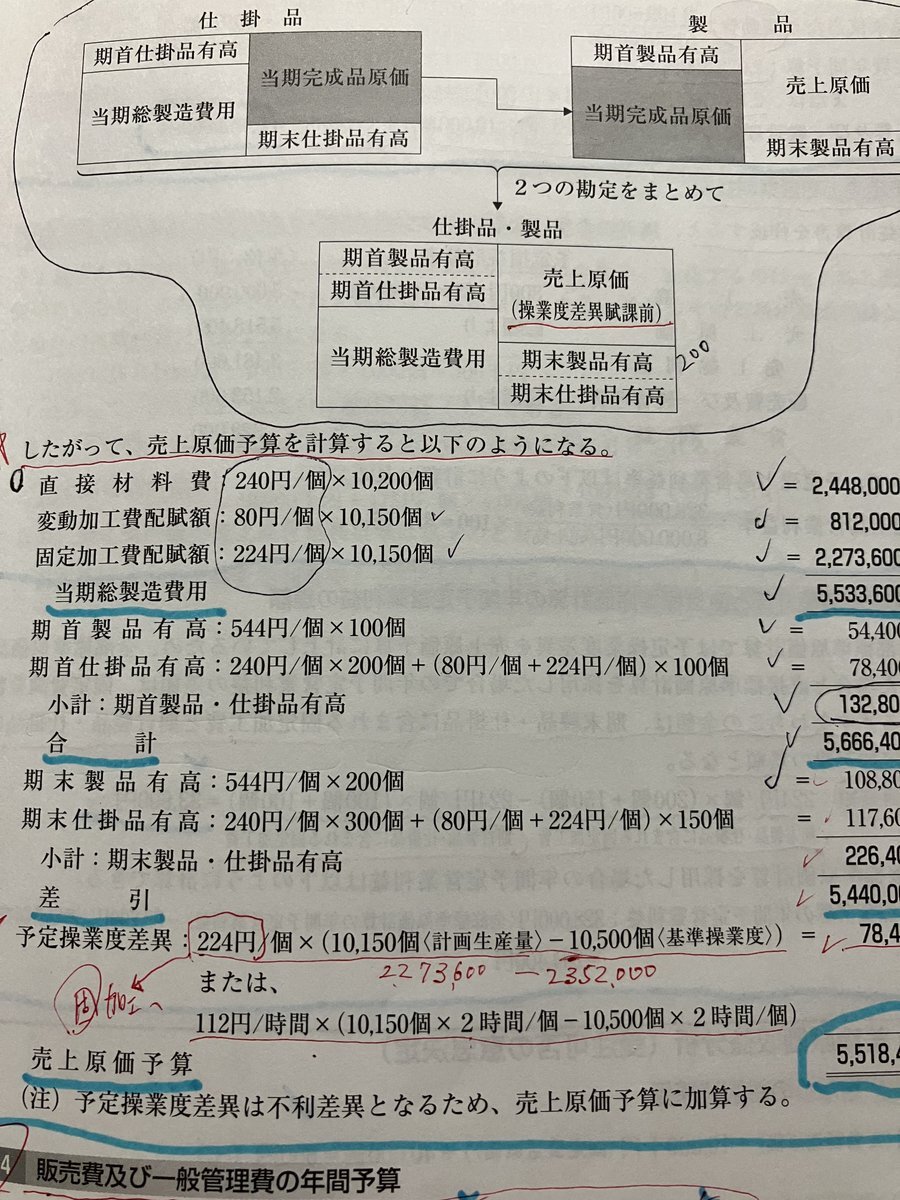 仕掛品
製品
期首仕掛品有高
当期完成品原価
当期総製造費用
期末仕掛品有高
期首製品有高
売上原価
当期完成品原価
期末製品有高
2つの勘定をまとめて
仕掛品・製品
期首製品有高
期首仕掛品有高
売上原価
(操業度差異賦課前)
当期総製造費用
期末製品有高
200
期末仕掛品有高
したがって、売上原価予算を計算すると以下のようになる。
直接材料費:240円/個×10,200個 = 2,448,000
変動加工費配賦額:80円/個×10,150個 = 812,000
固定加工費配賦額:224円/個×10,150個 = 2,273,600
当期総製造費用 5,533,600
期首製品有高:544円/個×100個 = 54,400
期首仕掛品有高:240円/個×200個+(80円/個+224円/個)×100個 = 78,400
小計:期首製品・仕掛品有高 132,80
合計 5,666,40
期末製品有高:544円/個×200個 = 108,80
期末仕掛品有高:240円/個×300個+(80円/個+224円/個)×150個 = 117,60
小計:期末製品・仕掛品有高 226,40
差引 5,440,00
予定操業度差異:224円/個×(10,150個〈計画生産量〉-10,500個〈基準操業度〉) = 78,4
2273,600 - 2352,000
固加工へ
または、
112円/時間×(10,150個×2時間/個-10,500個×2時間/個)
売上原価予算 5,518,4
(注) 予定操業度差異は不利差異となるため、売上原価予算に加算する。
4 販売費及び一般管理費の年間予算